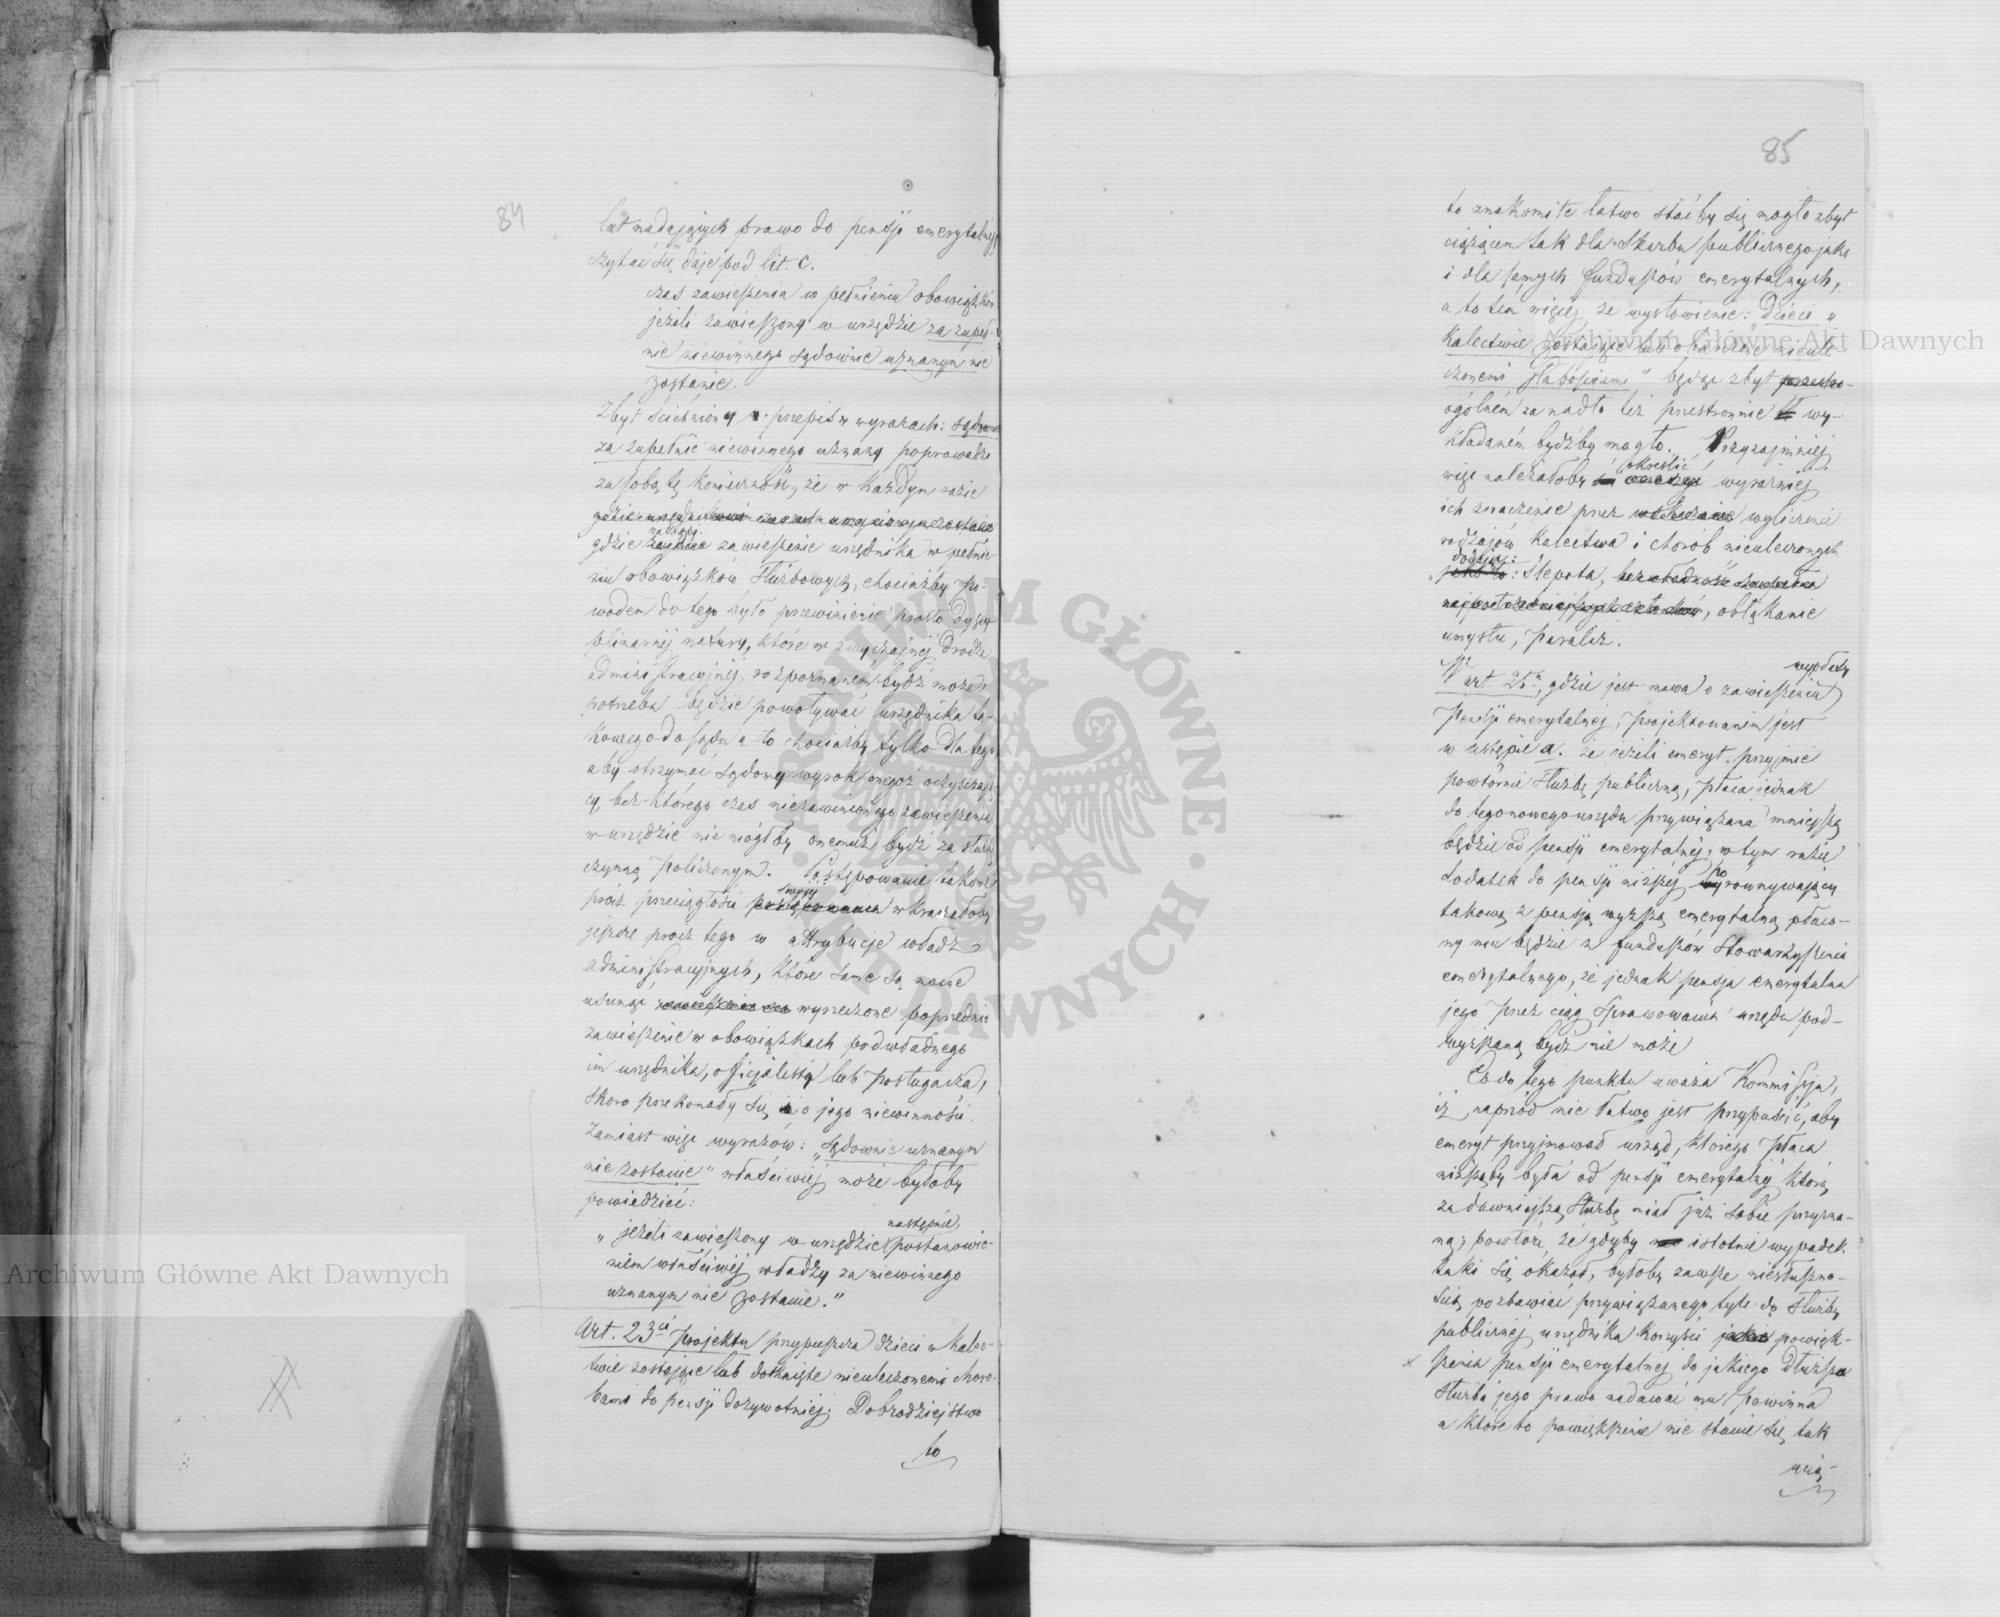 84
lat nadających prawo do pensji emerytalnéj
czytać się daje pod lit. C.
czas zawieszenia w pełnieniu obowiązków
jeżeli zawieszony w urzędzie za zupeł-
nie niewinnego sądownie uznanym nie
zostanie.
Zbyt ścieśniony przepis w wyrazach: sądownie
za zupełnie niewinnego uznany poprowadzi
za sobą tę konieczność, że w każdym razie
gdzie zawieszenie urzędnika w pełnie-
niu obowiązków służbowych, chociażby po-
wodem do tego było przewinienie prosto dyscy-
plinarnéj natury, które w zwyczajnéj drodze
administracyjnéj, rozpoznaném bydź może
potrzeba będzie powoływać urzędnika ta-
kowego do sądu a to chociażby tylko dla tego
aby otrzymać sądowy wyrok onegoż oczyszczają-
cy, bez którego czas niezawinionego zawieszenia
w urzędzie nie mógłby onemuż bydź za służbę
czynną policzonym. Postępowanie takowe
prócz przeciągłości swojéj wkraczałoby
jeszcze prócz tego w attrybucje władz
administracyjnych, które same są mocne
usunąć wyrzeczone poprzednio
zawieszenie w obowiązkach podwładnego
im urzędnika, officjalisty lub posługacza,
skoro przekonały się o jego niewinności.
Zamiast więc wyrazów: „sądownie uznanym
nie zostanie" właściwiéj może byłoby
powiedzieć:
następnie
„jeżeli zawieszony w urzędzie postanowie-
niem właściwéj władzy za niewinnego
uznanym nie zostanie."
Art. 23ci projektu przypuszcza dzieci w kalec-
twie zostające lub dotknięte nieuleczonemi choro-
bami do pensji dożywotniéj; Dobrodziejstwo
to
85
to znakomite łatwo stać by się mogło zbyt
ciążącem tak dla Skarbu publicznego jako
i dla samych funduszów emerytalnych,
a to tem więcéj że wysłowienie: „Dzieci w
kalectwie zostające lub obarczone nieule-
czonemi słabościami" będąc zbyt
ogólném za nadto też przestronnie wy-
kładaném bydźby mogło. Przynajmniéj
więc należałoby określić wyraźniéj
ich znaczenie przez wyliczenie
rodzajów kalectwa i chorób nieuleczonych
dodając: ślepota, obłąkanie
umysłu, paraliż.
W art. 25m, gdzie jest mowa o zawieszeniu wypłaty
Pensji emerytalnéj, projektowaném jest
w ustępie a. że jeżeli emeryt przyjmie
powtórnie służbę publiczną, płaca jednak
do tego nowego urzędu przywiązana mniejszą
będzie od pensji emerytalnéj, w tym razie
dodatek do pensji niższéj porównywający
takową z pensją wyższą emerytalną płaco-
ny mu będzie z funduszów Stowarzyszenia
emerytalnego, że jednak pensja emerytalna
jego przez ciąg sprawowania urzędu pod-
wyższoną bydź nie może
Co do tego punktu uważa Kommissja,
iż naprzód nie łatwo jest przypuścić, aby
emeryt przyjmował urząd, którego płaca
niższąby była od pensji emerytalnéj którą
za dawniejszą służbę miał już sobie przyzna-
ną; powtóre, że gdyby istotnie wypadek
taki się okazał, byłoby zawsze niesłuszno-
ścią pozbawiać przywiązanego tyle do służby
publicznéj urzędnika korzyści powięk-
szenia pensji emerytalnéj do jakiego dłuższa
służba jego prawo nadawać mu powinna
a które to powiększenie nie stanie się tak
Archiwum Główne Akt Dawnych
Archiwum Główne Akt Dawnych
ARCHIWUM GŁÓWNE AKT DAWNYCH